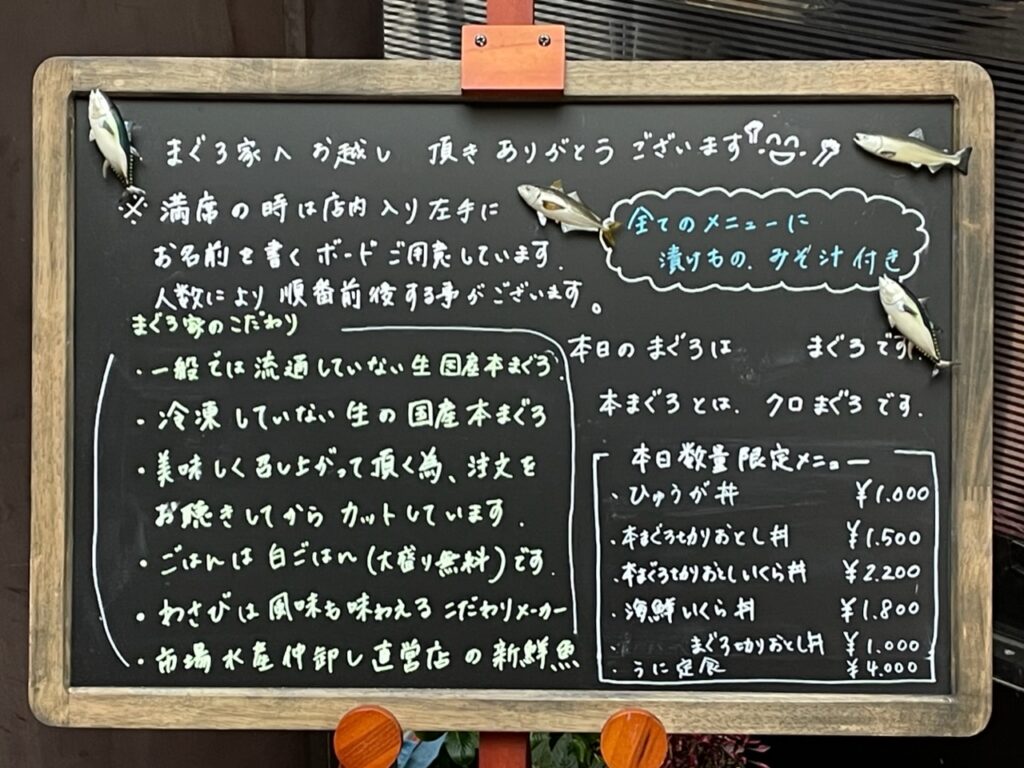 まぐろ家へ お越し 頂き ありがとう ございます
※ 満席 の 時 は 店内 入り 左手 に
お名前 を 書く ボード ご用意しています.
人数により 順番前後 する事 が ございます。
全てのメニューに
漬けもの、みそ汁 付き
まぐろ家のこだわり
・一般では 流通していない 生 国産本まぐろ.
・冷凍 していない 生 の 国産 本まぐろ
・美味しく召し上がって頂く為、注文を
お聴きしてから カットしています.
・ごはんは 白ごはん (大盛り無料) です.
・わさびは 風味も味わえる こだわりメーカー
・市場 水産 仲卸し 直営店 の 新鮮魚
本日の まぐろは まぐろ です
本まぐろ とは、クロ まぐろ です.
本日数量 限定メニュー
・ひゅうが丼 ¥1.000
・本まぐろ切りおとし丼 ¥1.500
・本まぐろ切りおとしいくら丼 ¥2.200
・海鮮いくら丼 ¥1.800
・ まぐろ切りおとし丼 ¥1.000
・うに定食 ¥4.000